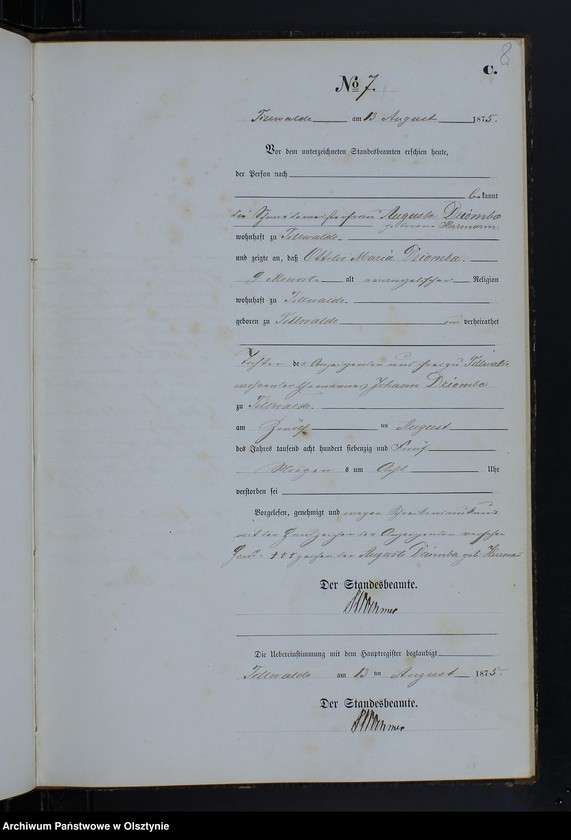 8
C.
No 7.
Tillwalde am 13 August 1875.
Vor dem unterzeichneten Standesbeamten erschien heute,
der Person nach
bekannt
die Auguste Dziomba
geborene Herrmann
wohnhaft zu Tillwalde.
und zeigte an, daß Ottilie Maria Dziomba.
9 Monate alt evangelischer Religion
wohnhaft zu Tillwalde.
geboren zu Tillwalde unverheirathet
Tochter der Anzeigenden und zu Tillwalde
Johann Dziomba
zu Tillwalde.
am August
des Jahres tausend acht hundert siebenzig und fünf
Morgens um Acht Uhr
verstorben sei
Vorgelesen, genehmigt und wegen Schreibensunkunde
mit den Handzeichen der Anzeigenden versehen
Hand- +++ zeichen der Auguste Dziomba geb. Herrmann
Der Standesbeamte.
Die Uebereinstimmung mit dem Hauptregister beglaubigt
Tillwalde am 13 ten August 1875.
Der Standesbeamte.
Archiwum Państwowe w Olsztynie